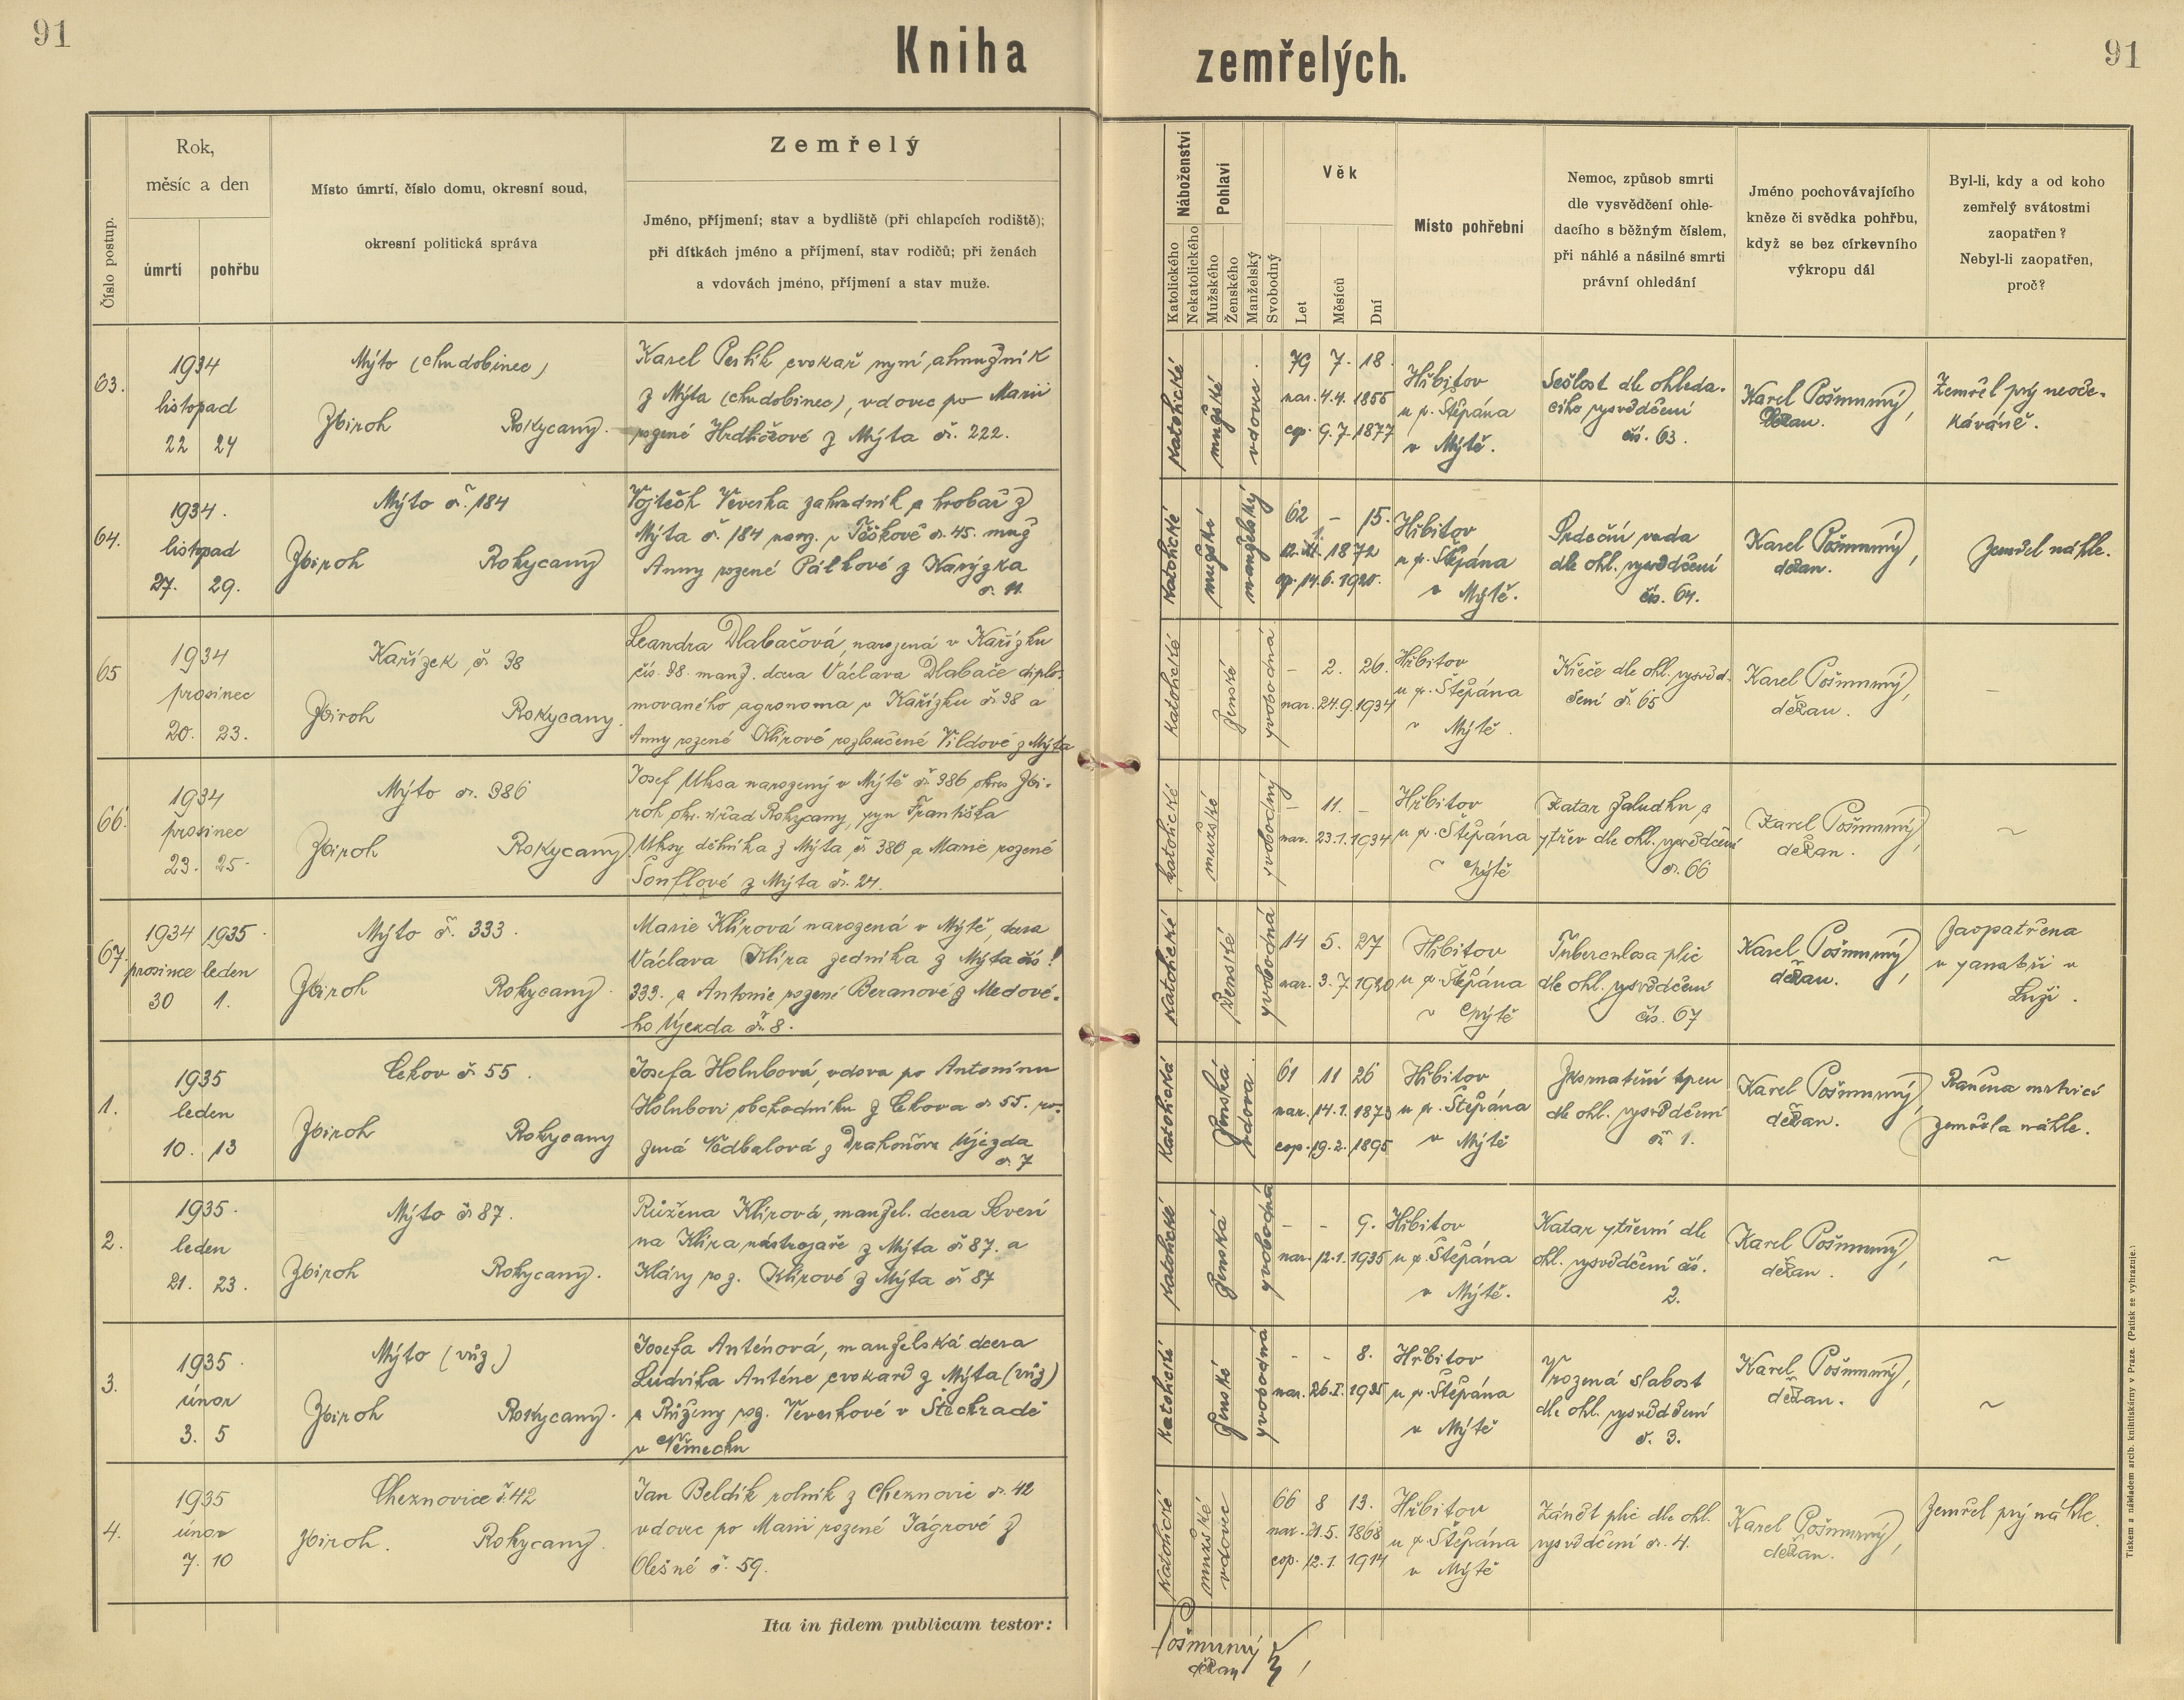 91
Kniha zemřelých.
91
Číslo postup.
Rok,
měsíc a den
úmrtí
pohřbu
Místo úmrtí, číslo domu, okresní soud,
okresní politická správa
Zemřelý
Jméno, příjmení; stav a bydliště (při chlapcích rodiště);
při dítkách jméno a příjmení, stav rodičů; při ženách
a vdovách jméno, příjmení a stav muže.
Náboženství
Katolického
Nekatolického
Pohlaví
Mužského
Ženského
Manželský
Svobodný
Věk
Let
Měsíců
Dní
Místo pohřební
Nemoc, způsob smrti
dle vysvědčení ohle-
dacího s běžným číslem,
při náhlé a násilné smrti
právní ohledání
Jméno pochovávajícího
kněze či svědka pohřbu,
když se bez církevního
výkropu dál
Byl-li, kdy a od koho
zemřelý svátostmi
zaopatřen?
Nebyl-li zaopatřen,
proč?
63.
1934
listopad
22 24
Mýto (chudobinec)
Zbiroh Rokycany.
Karel cvokař nyní almužník
z Mýta (chudobinec), vdovec po Marii
rozené Hrdličkové z Mýta č. 222.
katolické
mužské
vdovec.
79 7. 18.
nar. 4.4. 1855
cop. 9.7. 1877
Hřbitov
u sv. Štěpána
v Mýtě.
Sešlost dle ohleda-
cího vysvědčení
čís. 63.
Karel Pošmurný,
děkan.
Zemřel prý neoče-
káváně.
64.
1934.
listopad
27. 29.
Mýto č. 184
Zbiroh Rokycany
Vojtěch Veverka zahradník a hrobař z
Mýta č. 184 naroz. v Těškově č. 45. muž
Anny rozené Pálkové z Karýzka
č. 11.
katolické
mužské
manželský
62 – 15.
1872
cop. 14.6. 1920.
Hřbitov
u sv. Štěpána
v Mýtě.
Srdeční vada
dle ohl. vysvědčení
čís. 64.
Karel Pošmurný,
děkan.
Zemřel náhle.
65
1934
prosinec
20. 23.
Kařízek č. 38
Zbiroh Rokycany.
Leandra Dlabačová, narozená v Kařízku
čís. 38. manž. dcera Václava Dlabače diplo-
movaného agronoma v Kařízku č. 38 a
Anny rozené Klírové rozloučené Vildové z Mýta
katolické
ženské
svobodná
– 2. 26.
nar. 24.9. 1934
Hřbitov
u sv. Štěpána
v Mýtě.
Křeče dle ohl. vysvěd-
čení č. 65
Karel Pošmurný,
děkan.
–
66.
1934
prosinec
23. 25.
Mýto č. 386
Zbiroh Rokycany
Josef Uksa narozený v Mýtě č. 386 okres Zbi-
roh okr. úřad Rokycany, syn Františka
Uksy dělníka z Mýta č. 386 a Marie rozené
Šonflové z Mýta č. 24.
katolické
mužské
svobodný
– 11. –
nar. 23.1. 1934
Hřbitov
u sv. Štěpána
v Mýtě
Katar žaludku a
střev dle ohl. vysvědčení
č. 66
Karel Pošmurný,
děkan.
~
67.
1934 1935
prosinec leden
30 1.
Mýto č. 333.
Zbiroh Rokycany.
Marie Klírová narozená v Mýtě, dcera
Václava Klíra zedníka z Mýta čís!
333. a Antonie rozené Beranové z Medové-
ho Újezda č. 8.
katolické
ženské
svobodná
14 5. 27
nar. 3.7. 1920
Hřbitov
u sv. Štěpána
v Mýtě
Tuberculosa plic
dle ohl. vysvědčení
čís. 67
Karel Pošmurný,
děkan.
Zaopatřena
v sanatoři v
Luži.
1.
1935
leden
10. 13
Cekov č. 55.
Zbiroh Rokycany
Josefa Holubová, vdova po Antonínu
Holubovi obchodníku z Cekova č. 55. ro-
zená Nedbalová z Drahoňova Újezda
č. 7
katolická
ženská
vdova.
61 11 26
nar. 14.1. 1873
cop. 19.2. 1895
Hřbitov
u sv. Štěpána
v Mýtě
Zkornatění tepen
dle ohl. vysvědčení
č. 1.
Karel Pošmurný,
děkan.
Raněna mrtvicí
zemřela náhle.
2.
1935.
leden
21. 23.
Mýto č. 87.
Zbiroh Rokycany.
Růžena Klírová, manžel. dcera Severi
na Klíra, nástrojaře z Mýta č. 87. a
Kláry roz. Klírové z Mýta č. 87
katolické
ženská
svobodná
– – 9.
nar. 12.1. 1935
Hřbitov
u sv. Štěpána
v Mýtě.
Katar střevní dle
ohl. vysvědčení čís.
2.
Karel Pošmurný,
děkan.
~
3.
1935.
únor
3. 5
Mýto (vůz)
Zbiroh Rokycany.
Josefa Anténová, manželská dcera
Ludvíka Anténe cvokaře z Mýta (vůz)
a Růženy roz. Veverkové v Štechradě
v Německu
katolické
ženské
svobodná
- - 8.
nar. 26.I. 1935
Hřbitov
u sv. Štěpána
v Mýtě
Vrozená slabost
dle ohl. vysvědčení
č. 3.
Karel Pošmurný,
děkan.
~
4.
1935
únor
7. 10
Cheznovice č. 42
Zbiroh. Rokycany.
Jan Beldík rolník z Cheznovic č. 42
vdovec po Marii rozené Jágrové z
Olešné č. 59.
katolické
mužské
vdovec
66 8 13.
nar. 21.5. 1868
cop. 12.1. 1914
Hřbitov
u sv. Štěpána
v Mýtě
Zánět plic dle ohl.
vysvědčení č. 4.
Karel Pošmurný,
děkan.
Zemřel prý náhle.
Ita in fidem publicam testor:
Pošmurný
děkan
Tiskem a nákladem arcib. knihtiskárny v Praze. (Patisk se vyhrazuje.)